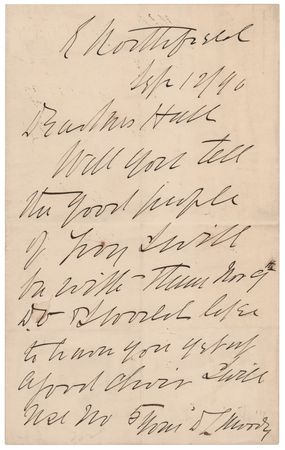 E Northfield
Sep 12/90
Dear Mrs Hall
Will you tell
the good people
of Troy I will
be with them Nov 9th
D.V. I would like
to have you get up
a good choir I will
use No 5 Yours D L Moody